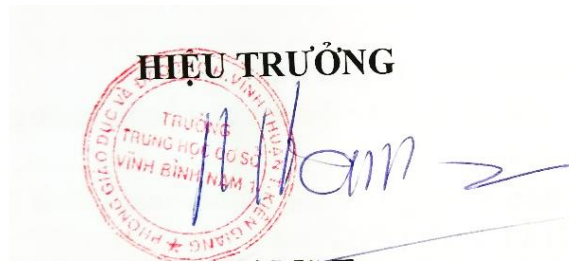 HIỆU TRƯỞNG
PHÒNG GIÁO DỤC VÀ VĨNH THUẬN T. KIÊN GIANG
TRƯỜNG
TRUNG HỌC CƠ SỞ
VĨNH BÌNH NAM 1